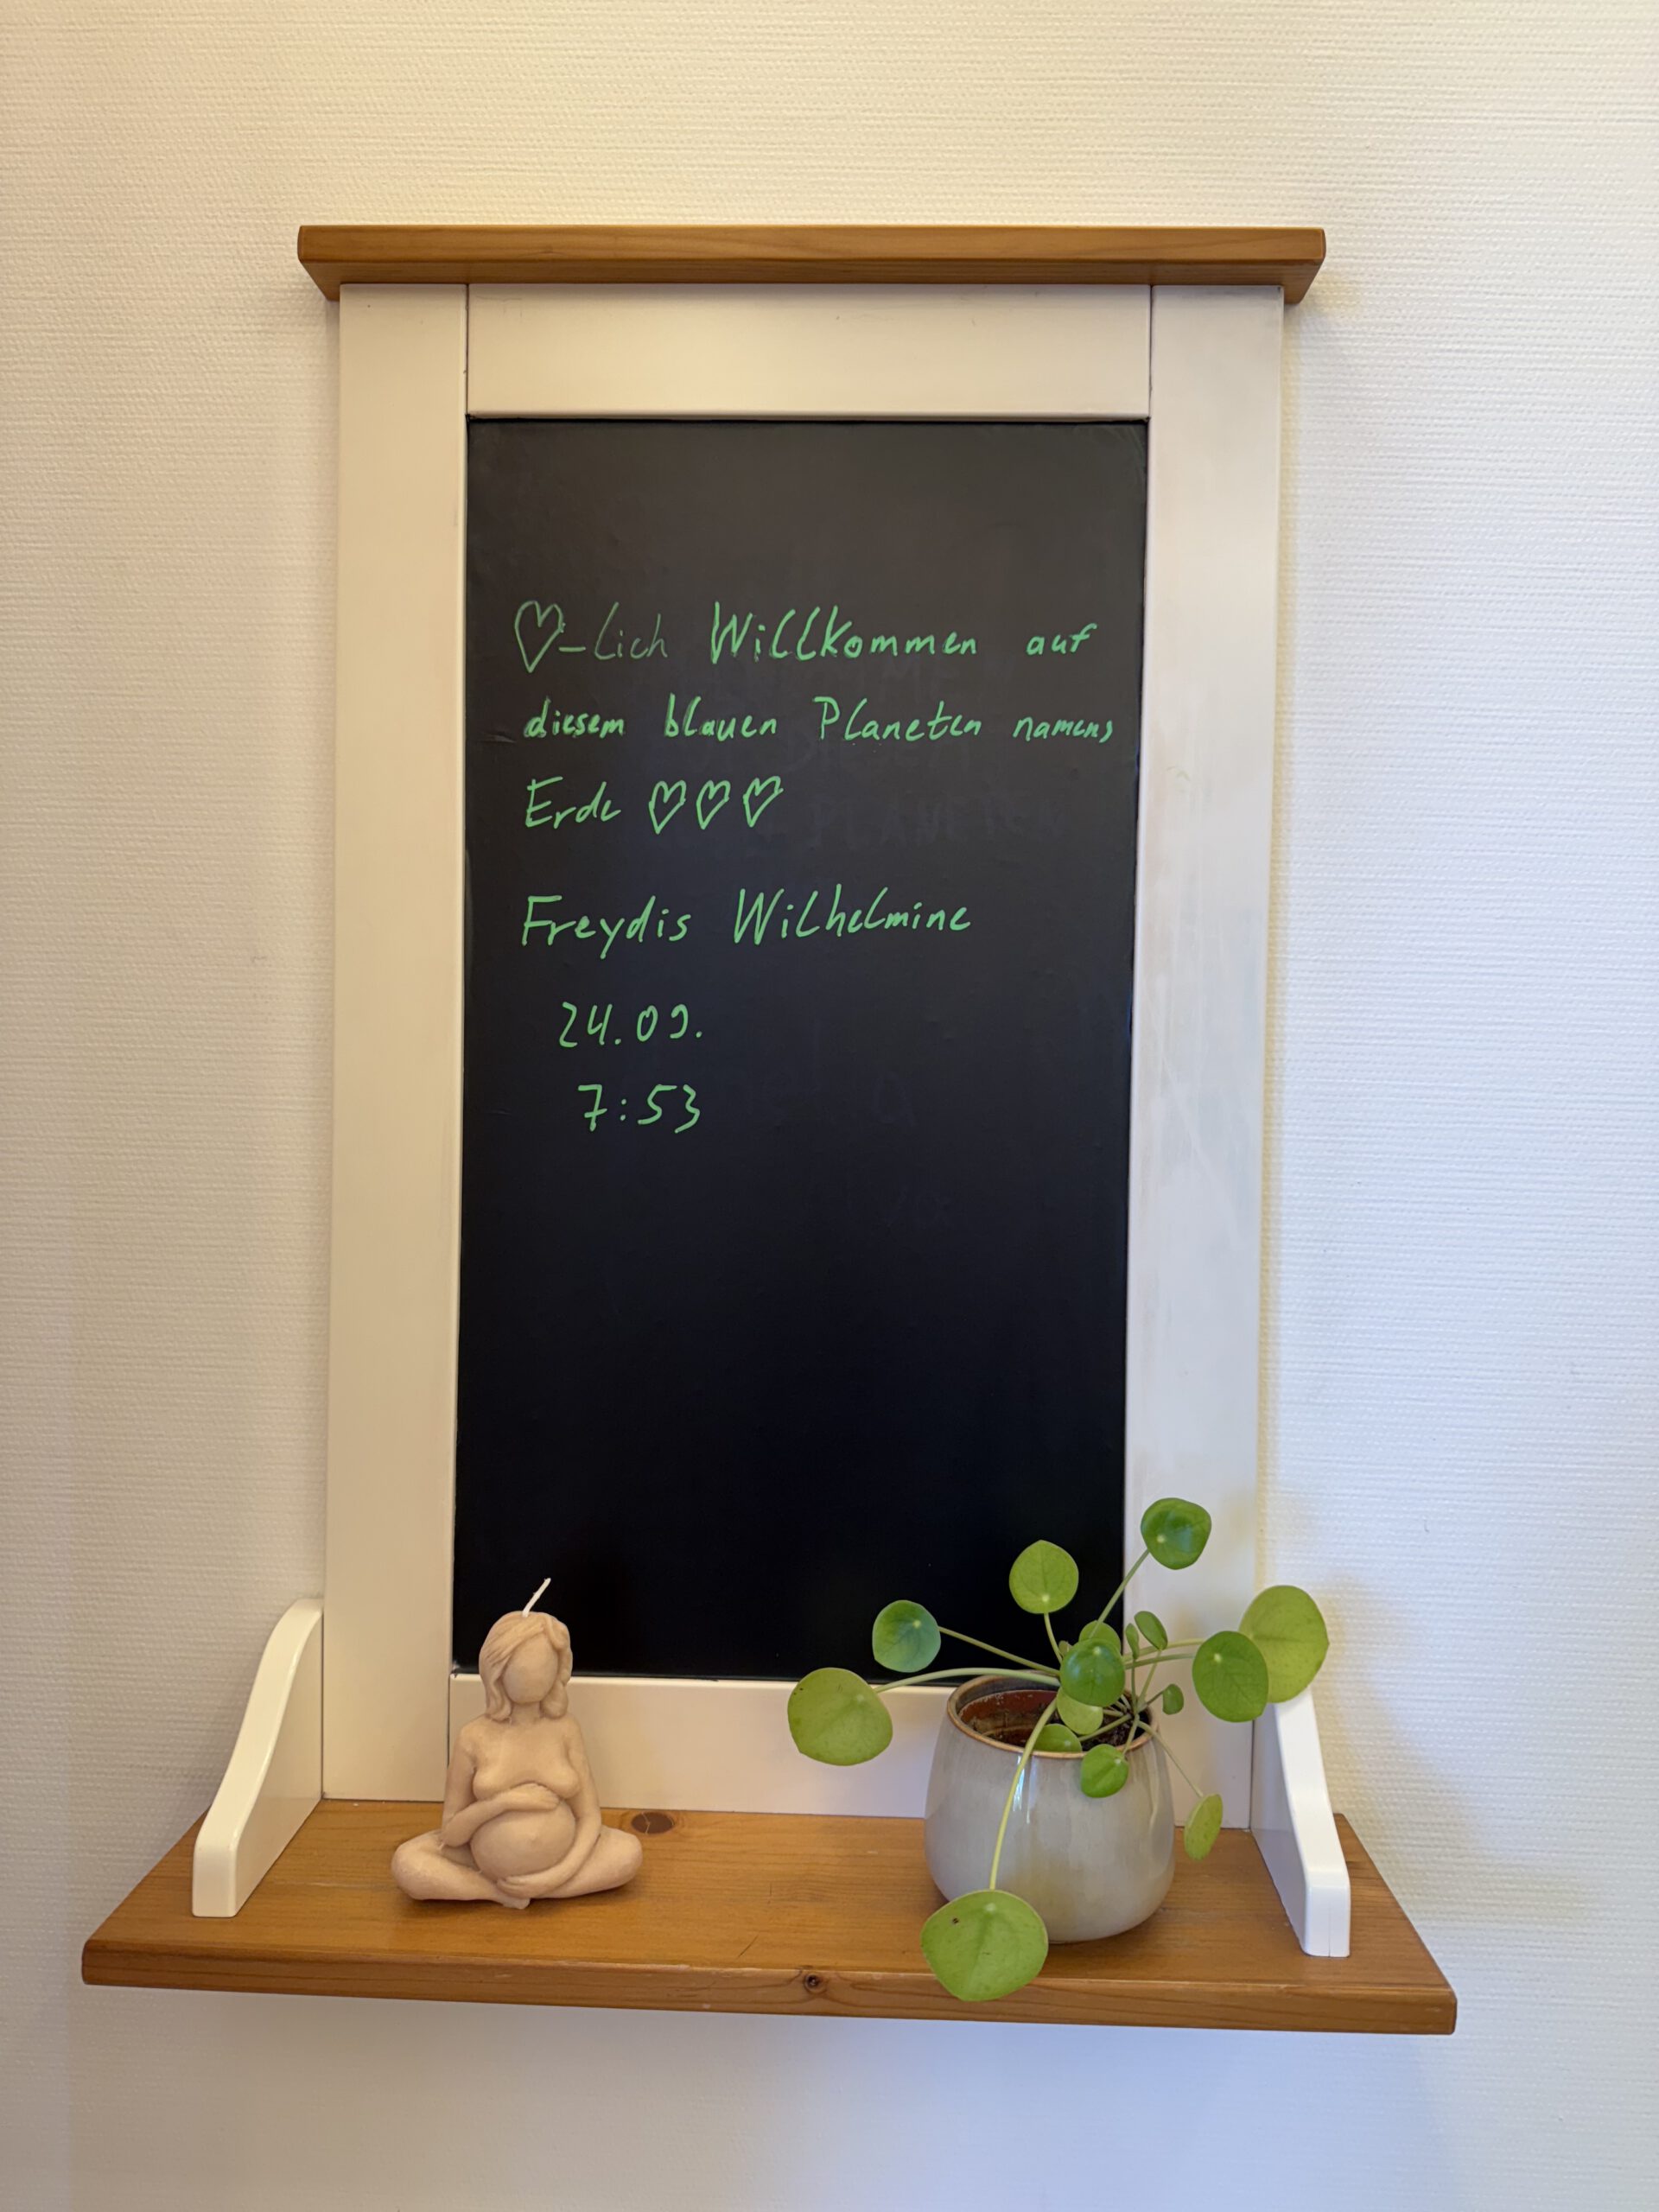 ♡-lich Willkommen auf
diesem blauen Planeten namens
Erde ♡♡♡
Freydis Wilhelmine
24.09.
7:53